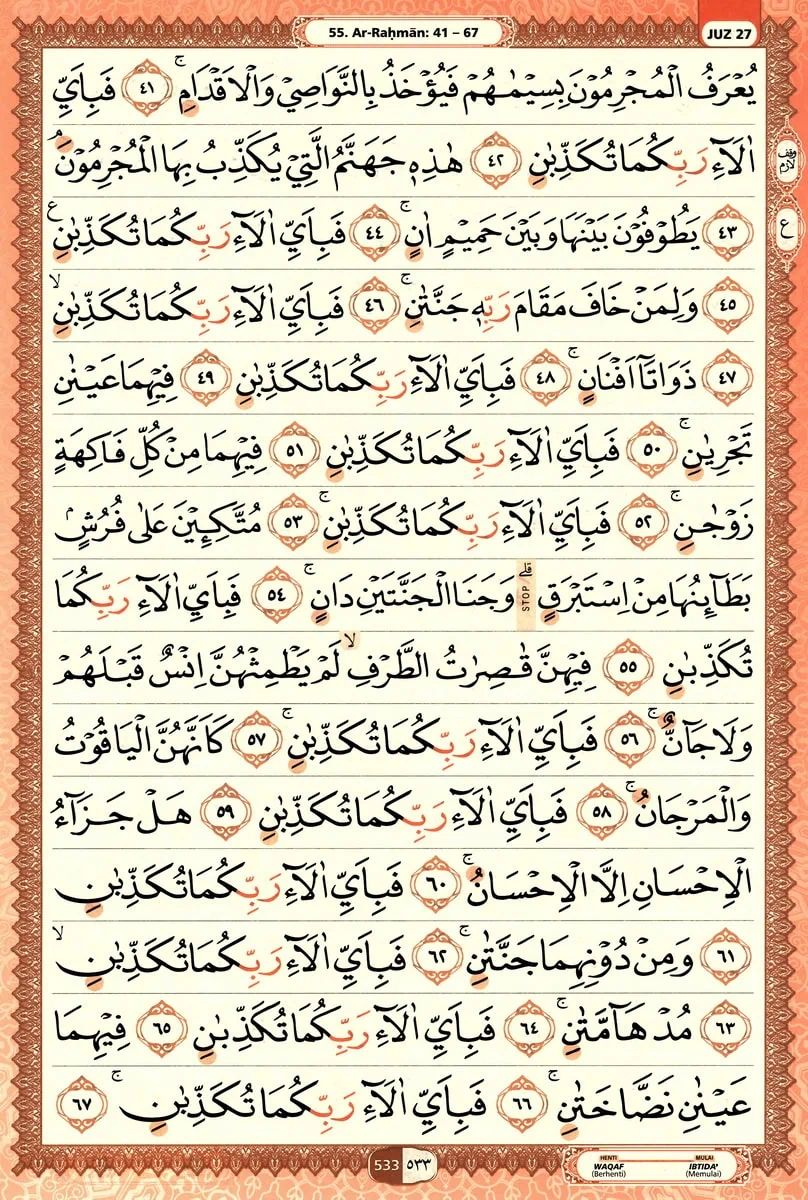 55. Ar-Raḥmān: 41 – 67
JUZ 27
يُعْرَفُ الْمُجْرِمُوْنَ بِسِيْمٰىهُمْ فَيُؤْخَذُ بِالنَّوَاصِيْ وَالْاَقْدَامِۚ ٤١ فَبِاَيِّ
اٰلَاۤءِ رَبِّكُمَا تُكَذِّبٰنِ ٤٢ هٰذِهٖ جَهَنَّمُ الَّتِيْ يُكَذِّبُ بِهَا الْمُجْرِمُوْنَۘ
وقف لازم
٤٣ يَطُوْفُوْنَ بَيْنَهَا وَبَيْنَ حَمِيْمٍ اٰنٍۚ ٤٤ فَبِاَيِّ اٰلَاۤءِ رَبِّكُمَا تُكَذِّبٰنِ ع
ع
٤٥ وَلِمَنْ خَافَ مَقَامَ رَبِّهٖ جَنَّتٰنِۚ ٤٦ فَبِاَيِّ اٰلَاۤءِ رَبِّكُمَا تُكَذِّبٰنِۙ
٤٧ ذَوَاتَآ اَفْنَانٍۚ ٤٨ فَبِاَيِّ اٰلَاۤءِ رَبِّكُمَا تُكَذِّبٰنِ ٤٩ فِيْهِمَا عَيْنٰنِ
تَجْرِيٰنِۚ ٥٠ فَبِاَيِّ اٰلَاۤءِ رَبِّكُمَا تُكَذِّبٰنِ ٥١ فِيْهِمَا مِنْ كُلِّ فَاكِهَةٍ
زَوْجٰنِۚ ٥٢ فَبِاَيِّ اٰلَاۤءِ رَبِّكُمَا تُكَذِّبٰنِۚ ٥٣ مُتَّكِـِٕيْنَ عَلٰى فُرُشٍۢ
بَطَاۤىِٕنُهَا مِنْ اِسْتَبْرَقٍۗ STOP وَجَنَا الْجَنَّتَيْنِ دَانٍۚ ٥٤ فَبِاَيِّ اٰلَاۤءِ رَبِّكُمَا
تُكَذِّبٰنِ ٥٥ فِيْهِنَّ قٰصِرٰتُ الطَّرْفِۙ لَمْ يَطْمِثْهُنَّ اِنْسٌ قَبْلَهُمْ
وَلَا جَاۤنٌّۚ ٥٦ فَبِاَيِّ اٰلَاۤءِ رَبِّكُمَا تُكَذِّبٰنِۚ ٥٧ كَاَنَّهُنَّ الْيَاقُوْتُ
وَالْمَرْجَانُۚ ٥٨ فَبِاَيِّ اٰلَاۤءِ رَبِّكُمَا تُكَذِّبٰنِ ٥٩ هَلْ جَزَاۤءُ
الْاِحْسَانِ اِلَّا الْاِحْسَانُۚ ٦٠ فَبِاَيِّ اٰلَاۤءِ رَبِّكُمَا تُكَذِّبٰنِ
٦١ وَمِنْ دُوْنِهِمَا جَنَّتٰنِۚ ٦٢ فَبِاَيِّ اٰلَاۤءِ رَبِّكُمَا تُكَذِّبٰنِۙ
٦٣ مُدْهَاۤمَّتٰنِۚ ٦٤ فَبِاَيِّ اٰلَاۤءِ رَبِّكُمَا تُكَذِّبٰنِ ٦٥ فِيْهِمَا
عَيْنٰنِ نَضَّاخَتٰنِۚ ٦٦ فَبِاَيِّ اٰلَاۤءِ رَبِّكُمَا تُكَذِّبٰنِۚ ٦٧
533 ٥٣٣
HENTI WAQAF (Berhenti)
MULAI IBTIDA' (Memulai)